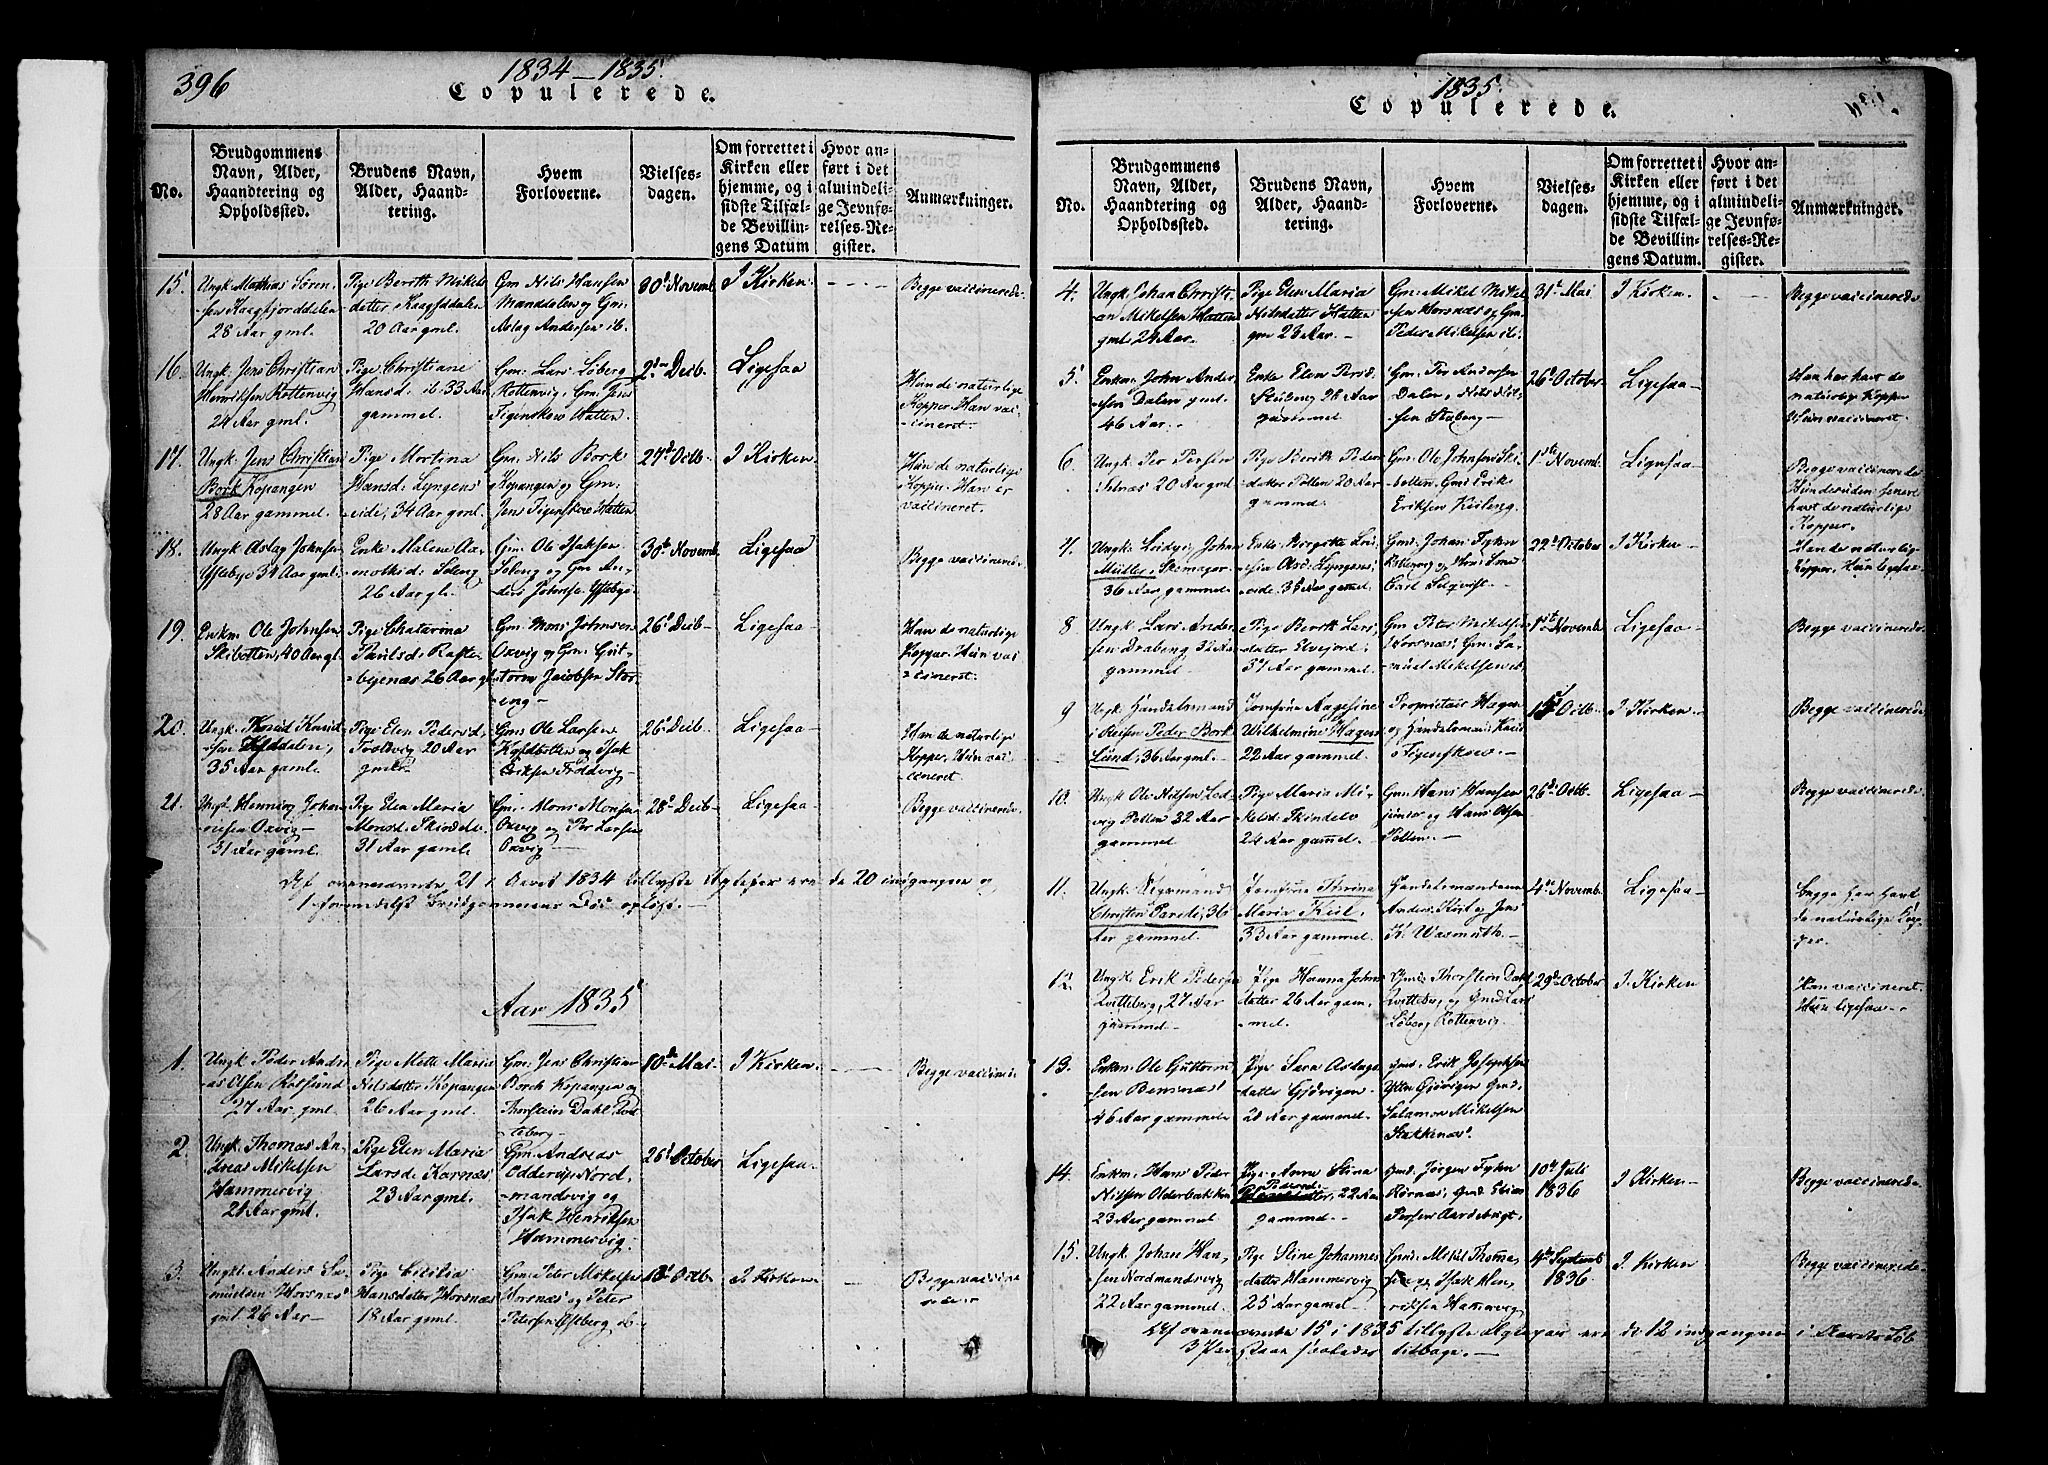 396
1834 – 1835.
Copulerede.
No.
Brudgommens Navn, Alder, Haandtering og Opholdssted.
Brudens Navn, Alder, Haandtering.
Hvem Forloverne.
Vielsesdagen.
Om forrettet i Kirken eller hjemme, og i sidste Tilfælde Bevillingens Datum
Hvor anført i det almindelige Jevnførelses-Register.
Anmærkninger.
15.
Ungk. Mathias Sørensen Kaagfjorddalen 28 Aar gml.
Pige Berith Mikeldatter, Kaagfddalen 20 Aar gml.
Gm. Nils Hansen Manddalen og Gm. Aslag Andersen ib.
30d Novemb.
I Kirken
Begge vaccinerede.
16.
Ungk. Jens Christian Henriksen Rottenvig 24 Aar gml.
Pige Christiane Hansd. ib. 33 Aar gammel.
Gm: Lars Løberg Rottenvig, Gm. Jens Figenskou Hatten.
2den Decb.
Ligesaa
Hun de naturlige Kopper. Han vaccineret.
17.
Ungk. Jens Christian Bork Kopangen 28 Aar gammel.
Pige Mortina Hansd: Lyngenseide, 34 Aar gml.
Gm. Nils Bork Kopangen og Gm: Jens Figenskou Hatten
27d Octb.
I Kirken
Hun de naturlige Kopper. Han er vaccineret.
18.
Ungk. Aslag Johnsen Yttebye 34 Aar gml.
Enke Malene Aamothsd: Soleng 26 Aar gl.
Gm: Ole Isaksen Soleng og Gm Anders Johnsen Yttebye
30te Novemb.
Ligesaa
Begge vaccinerede.
19.
Enkm. Ole Johnsen Skibotten, 40 Aar gl.
Pige Chatarina Paulsd: Rasteby​enæs 26 Aar gl.
Gm: Mons Johnsen Oxvig og Gm: Guttorm Jacobsen Storeng
26d Decb
Ligesaa
Han de naturlige Kopper. Hun vaccineret.
20.
35 Aar gaml.
Pige Elen Pedersd. Troldvig 20 Aar
Gm: Ole Larsen og Isak Eriksen Troldvig
26d Decb
Ligesaa
Han de naturlige Kopper. Hun vaccineret
21.
Ungk. Henning Johannesen Oxvig 31 Aar gaml.
Pige Elen Maria Monsd. Skindelv 31 Aar gaml.
Gm: Mons Monsen Oxvig og Per Larsen Oxvig
28d Decb
Ligesaa
Begge vaccinerede
Af ovennævnte 21 i Aaret 1834 tillyste Ægtepar ere de 20 indgangne og
1 formedelst Brudgommens Død opløst.
Aar 1835
1.
Ungk. Peder Andreas Olsen Kolsund 27 Aar gml.
Pige Mette Maria Nilsdatter Kopangen 26 Aar gml.
Gm: Jens Christian Borch Kopangen og Thorstein Dahl, Rotteberg
10de Mai
I Kirken
Begge vaccinere
2.
Ungk. Thomas Andreas Mikelsen Hammervig. 21 Aar gml.
Pige Elen Maria Larsd: Karnæs 23 Aar gml.
Gm. Andreas Oddersen Nordmandsvig og Isak Henriksen Hammervig.
26d October
Ligesaa
3.
Ungkl: Anders Samuelsen Horsnæs gml 26 Aar
Pige Cicilia Hansdatter Horsnæs 18 Aar gml.
Gm: Peter Mikelsen Horsnæs og Peter Petersen ib
18d Octb
I Kirken
Begge vaccinerede
1835.
Copulerede.
No.
Brudgommens Navn, Alder, Haandtering og Opholdssted.
Brudens Navn, Alder, Haandtering.
Hvem Forloverne.
Vielsesdagen.
Om forrettet i Kirken eller hjemme, og i sidste Tilfælde Bevillingens Datum.
Hvor anført i det almindelige Jevnførelses-Register.
Anmærkninger.
4.
Ungk. Johan Christian Mikelsen Hatten gml, 24 Aar.
Pige Elen Maria Nilsdatter Hatten gm 23 Aar.
Gm: Mikel Mikelsen Horsnæs og Gm: Peder Mikelsen ib.
31t Mai
I Kirken.
Begge vaccinerede
5.
Enkm: John Andersen Dalen gml. 46 Aar.
Enke Elen Persd. Stubeng 28 Aar gammel
Gm. Per Andersen Dalen, Nils Nilsen Stubeng
26d October
Ligesaa
Han har havt de naturlige Kopper Hun vaccineret.
6.
Ungk. Per Persen 20 Aar gml
Pige Berith Pedersdatter Pollen 20 Aar gammel.
Gm: Ole Johnsen Skibotten. Gm: Erik Eriksen Kiileng.
1ste Novemb.
Ligesaa
Begge vaccinerede Hun desuden senere havt de naturlige Kopper.
Müller, Skomager 36 Aar gammel
Olsd: Lyngenseide. 35 Aar gammel
Gmd: Johan Fyhn
22d October
I Kirken
Han de naturlige Kopper, Hun ligesaa
8
Ungk. Lars Andersen Drabeng 31 Aar gammel
Pige Berith Larsdatter Elvejord. 37 Aar gammel
Gm Peter Mikelsen Horsnæs, Gm: Samuel Mikelsen ib
1ste Novemb
Ligesaa
Begge vaccinerede
9
Ungk. Handelsmand i Reisen Peder Bork Lund, 36 Aar gml.
Jomfrue Aagesine Wilhelmine Hagen 22 Aar gammel.
Proprietair Hagen og Handelsmand
Octb.
I Kirken.
Begge vaccinerede
10.
Ungk Ole Nilsen Lodvig Pollen 32 Aar gammel
Pige Maria Mikelsd. Skindelv 24 Aar gammel.
Gm: Hans Hansen junior og Hans Olsen Pollen.
26d Octb.
Ligesaa
Begge vaccinerede
11.
Christen Parelii, 36 Aar gammel.
Jomfrue Maria Kiil. 33 Aar gammel.
Handelsmændene Anders Kiil og Jens K. Wasmuth.
4de Novemb.
Ligesaa
begge har havt de naturlige Kopper.
12.
Ungk: Erik Pedersen Rotteberg, 27 Aar gammel
Pige Hanna Johnsdatter 26 Aar gammel.
Gmd: Thorstein Dahl Rotteberg og Gmd Lars Løberg, Rottenvig
29de October
I. Kirken
Han vaccineret. Hun ligesaa
13.
Enkm: Ole Guttormsen Bensnæs 46 Aar gammel
Pige Sara Aslagsdatter Gjøvigen 21 Aar gammel.
Gmd: Erik Josephsen Yttre Gjøvigen Gmd. Salamon Mikelsen Stakkenæs.
14.
Enkm. Hans Peder Nilsen Olderbakken 23 Aar gammel.
Pige Anne Stina Pedersd. 22 Aar gammel.
Gmd: Jørgen Fyhn Gmd. Elias Persen
10de Juli 1836
I Kirken
Begge vaccinerede.
15.
Ungk. Johan Hansen Nordmandsvig 22 Aar gammel
Pige Stine Johannesdatter Hammervig 25 Aar gamel
Gmd: Mikel Thomasen og Isak Henriksen Hammervig
4de Septemb 1836
I. Kirken
Begge vaccinerede
Af ovennævnte 15 i 1835 tillyste Ægtepar ere de 12 indgangne i Aarets Løb
3 Par staar saaledes tilbage.